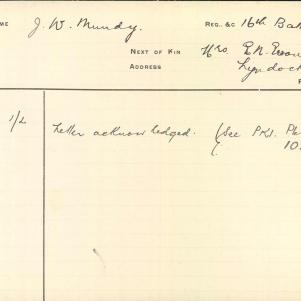 ME J. W. Mundy. REG. &C 16th Bat
NEXT OF KIN Mrs
ADDRESS Lyndoch
1/2 Letter acknowledged. (See
10